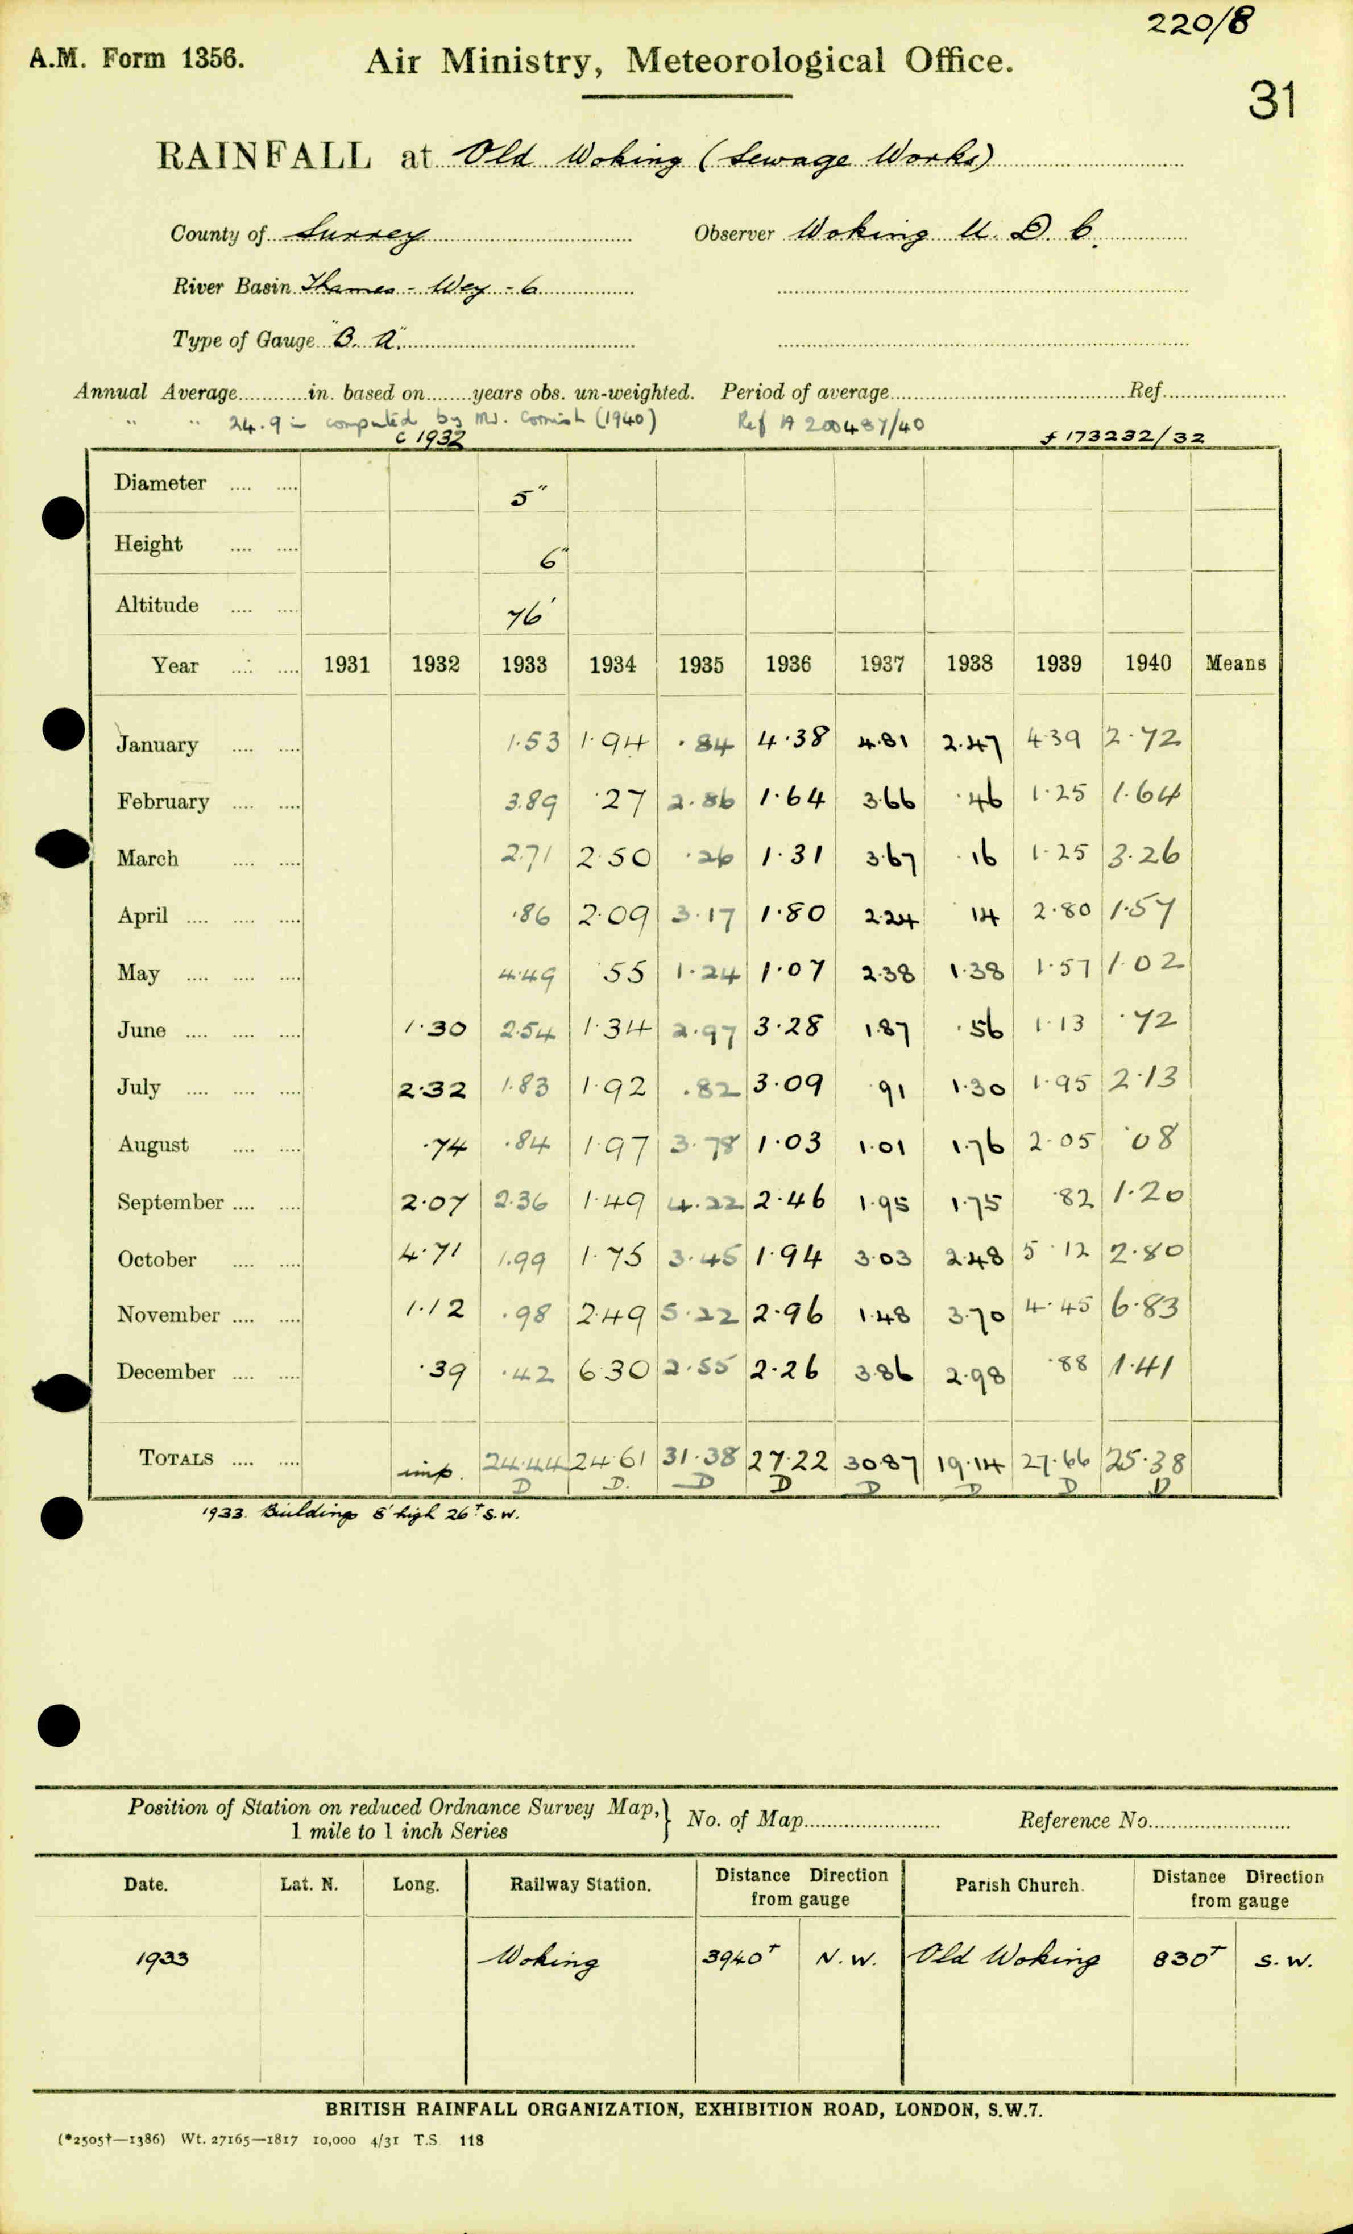 220/8
A.M. Form 1356. Air Ministry, Meteorological Office.
31
RAINFALL at Old Woking (Sewage Works)
County of Surrey Observer Woking U. D. C.
River Basin Thames - Wey - 6
Type of Gauge "B. A."
Annual Average............in. based on........years obs. un-weighted. Period of average............Ref............
" " 24.9 in computed by Mr. Cornish (1940) Ref A 200487/40
c 1932 f 173232/32
Diameter .... .... 5"
Height .... .... 6"
Altitude .... .... 76'
Year .... .... 1931 1932 1933 1934 1935 1936 1937 1938 1939 1940 Means
January .... .... 1.53 1.94 .84 4.38 4.81 2.47 4.39 2.72
February .... .... 3.89 .27 2.86 1.64 3.66 .46 1.25 1.64
March .... .... 2.71 2.50 .26 1.31 3.67 .16 1.25 3.26
April .... .... .... .86 2.09 3.17 1.80 2.24 14 2.80 1.57
May .... .... .... 4.49 55 1.24 1.07 2.38 1.38 1.57 1.02
June .... .... .... 1.30 2.54 1.34 2.97 3.28 1.87 .56 1.13 .72
July .... .... .... 2.32 1.83 1.92 .82 3.09 .91 1.30 1.95 2.13
August .... .... .74 .84 1.97 3.78 1.03 1.01 1.76 2.05 .08
September .... .... 2.07 2.36 1.49 4.22 2.46 1.95 1.75 .82 1.20
October .... .... 4.71 1.99 1.75 3.45 1.94 3.03 2.48 5.12 2.80
November .... .... 1.12 .98 2.49 5.22 2.96 1.48 3.70 4.45 6.83
December .... .... .39 .42 6.30 2.55 2.26 3.86 2.98 .88 1.41
TOTALS .... .... imp. 24.44 24.61 31.38 27.22 30.87 19.14 27.66 25.38
D D. D D D D D D
1933. Buildings 8' high 26† S.W.
Position of Station on reduced Ordnance Survey Map, } No. of Map............ Reference No............
1 mile to 1 inch Series
Date. Lat. N. Long. Railway Station. Distance Direction from gauge Parish Church. Distance Direction from gauge
1933 Woking 3940† N.W. Old Woking 830† S.W.
BRITISH RAINFALL ORGANIZATION, EXHIBITION ROAD, LONDON, S.W.7.
(*2505†—1386) Wt. 27165—1817 10,000 4/31 T.S. 118